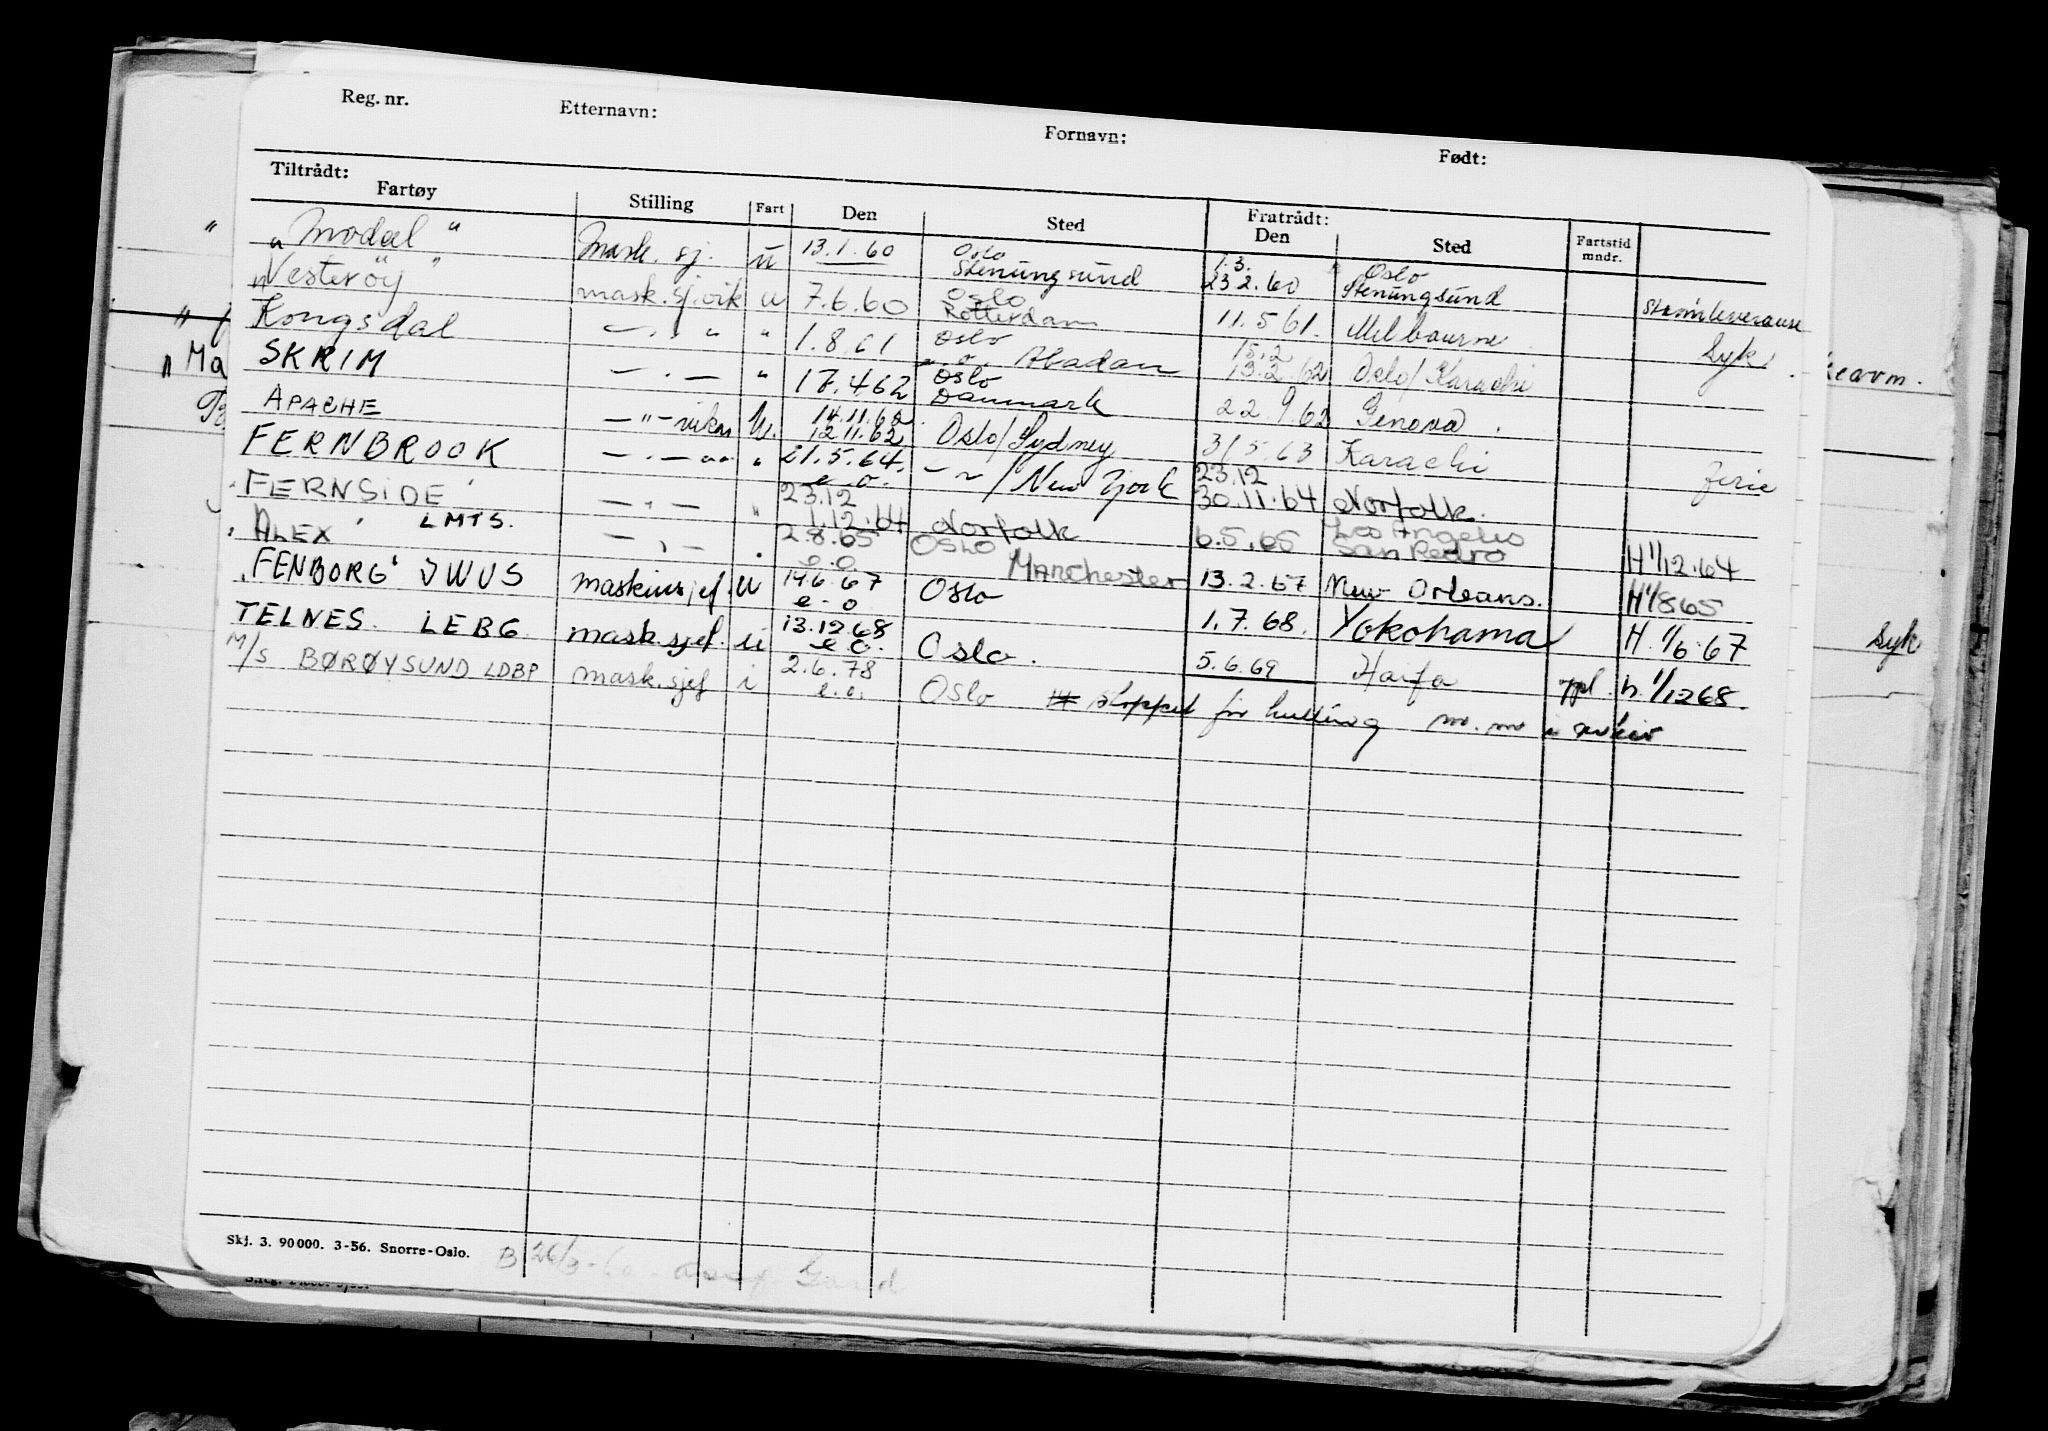 Reg. nr. Etternavn: Fornavn: Født:
Tiltrådt: Fratrådt:
Fartøy Stilling Fart Den Sted Den Sted Fartstid mndr.
"Modal" Mask. sj. u 13.1.60 Oslo Stenungsund 1.3. 23.2.60 Oslo Stenungsund
"Vesteröy" mask. sj. vik u 7.6.60 Oslo Rotterdam 11.5.61. Melbourne
Kongsdal — . " " 1.8.61 Oslo Abadan 15.2 13.2.62 Oslo/Karachi Syk.
SKRIM — . — " 17.4.62 Oslo Danmark 22.9.62 Genova.
APACHE — " — vikar U. 14.11.62 12.11.62 Oslo/Sydney 31.5.63 Karachi
FERNBROOK — . — " " 21.5.64. e.o. — " / New York 23.12 30.11.64 Norfolk. Ferie
"FERNSIDE" LMTS. — " — " 23.12 1.12.64 Norfolk 6.5.65 Los Angeles San Pedro H 1/12.64
"ALEX" — " — . 2.8.65 e.o. OSLO MANCHESTER 13.2.67 New Orleans. H 1/8 65
"FENBORG" JWUS maskinsjef. u 14.6.67 e.o. Oslo 1.7.68. Yokohama H. 1/6.67 Syk
TELNES. LEBG. mask.sjef. u 13.12.68 e.o. Oslo. 5.6.69 Haifa h. 1/12 68.
M/S BØRØYSUND LDBP mask.sjef i 2.6.78 e.o. Oslo stoppet for m.m i
Skj. 3. 90000. 3-56. Snorre-Oslo.
B 26/3-60
" Ma